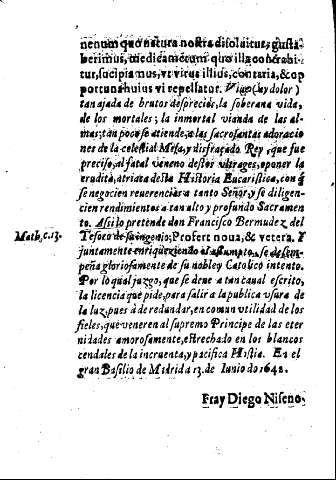 nenum quo natura nostra disoluitur, gusta
berimus, medicamentum quo illa coherabi
tur, sucipiamus, vt virus illius, contaria, & op
portuna huius vi repellatur. Vi (ay dolor)
tan ajada de brutos desprecios, la soberana vida,
de los mortales; la inmortal vianda de las al-
mas; tan poco se atiende, a las sacrosantas adoracio
nes de la celestial Mesa, y disfraçado Rey, que fue
preciso, al fatal veneno destos vltrages, oponer la
erudita, atriaca desta Historia Eucaristica, con q̃
se negocien reuerencias a tanto Señor, y se diligen-
cien rendimientos a tan alto y profundo Sacramen
to. Assi lo pretende don Francisco Bermudez del
Math. c. 13. Tesoro de su ingenio; Profert noua, & vetera. Y
juntamente enriqueziendo el assumpto, se desem-
peña gloriosamente de su noble y Catolico intento.
Por lo qual juzgo, que se deue a tan caual escrito,
la licencia que pide, para salir a la publica vsura de
la luz, pues à de redundar, en comun vtilidad de los
fieles, que veneren al supremo Principe de las eter
nidades amorosamente, estrechado en los blancos
cendales de la incruenta, y pacifica Hostia. En el
gran Basilio de Madrid a 13. de Iunio de 1642.
Fray Diego Niseno.